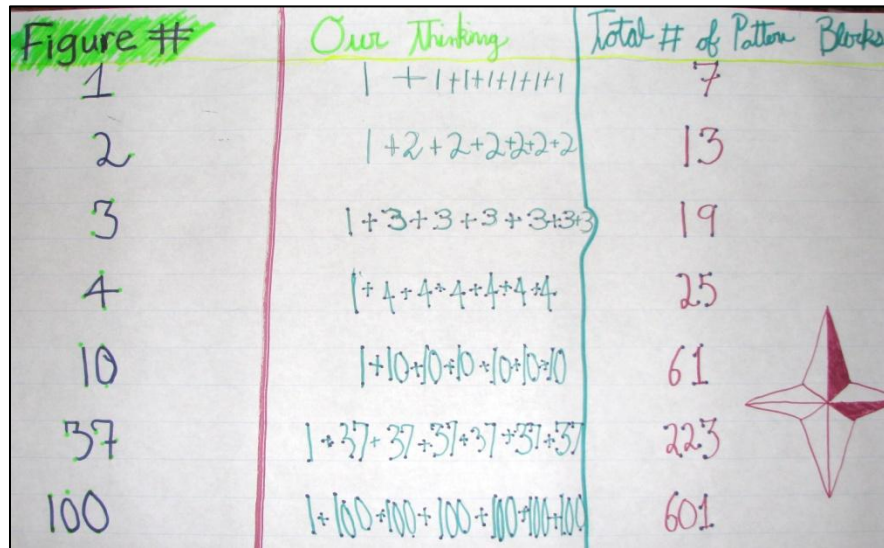 Figure # Our Thinking Total # of Pattern Blocks
1 1 + 1+1+1+1+1+1 7
2 1+2+2+2+2+2+2 13
3 1+3+3+3+3+3+3 19
4 1+4+4+4+4+4+4 25
10 1+10+10+10+10+10+10 61
37 1+37+37+37+37+37+37 223
100 1+100+100+100+100+100+100 601